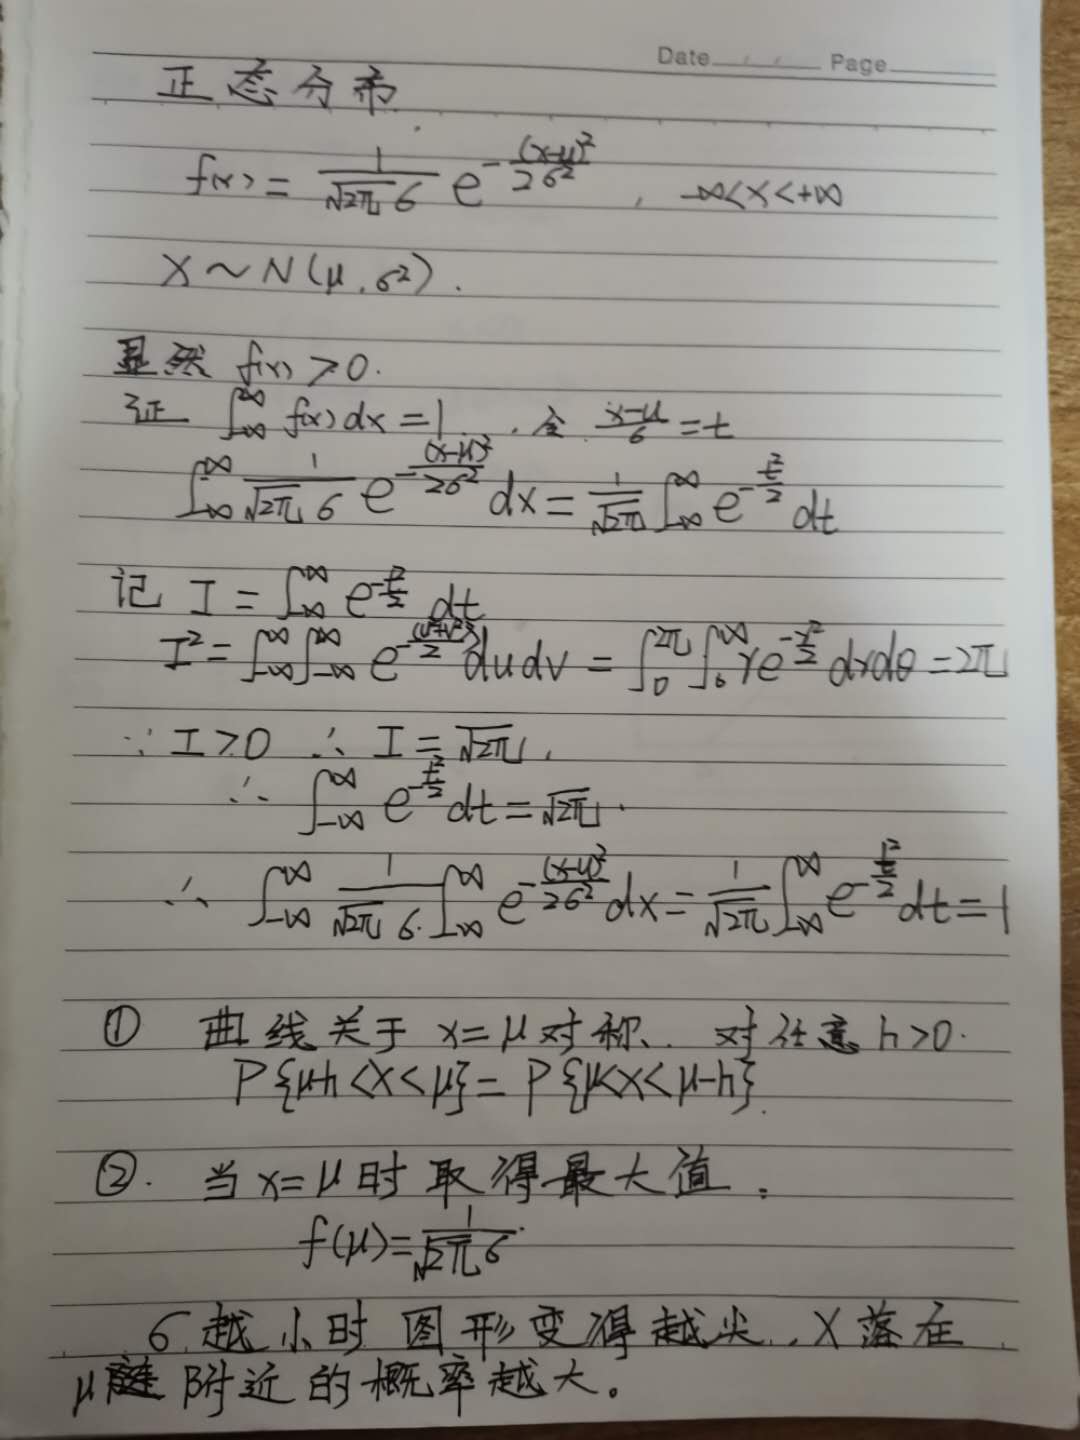 Date / / Page
正态分布
f(x) = \frac{1}{\sqrt{2π} σ} e^{-\frac{(x-μ)^2}{2σ^2}} , -∞<x<+∞
X ~ N(μ, σ²).
显然 f(x) > 0.
证 ∫_{-∞}^{∞} f(x) dx = 1, 令 \frac{x-μ}{σ} = t
∫_{-∞}^{∞} \frac{1}{\sqrt{2π} σ} e^{-\frac{(x-μ)^2}{2σ^2}} dx = \frac{1}{\sqrt{2π}} ∫_{-∞}^{∞} e^{-\frac{t^2}{2}} dt
记 I = ∫_{-∞}^{∞} e^{-\frac{t^2}{2}} dt
I² = ∫_{-∞}^{∞} ∫_{-∞}^{∞} e^{-\frac{(u^2+v^2)}{2}} du dv = ∫_{0}^{2π} ∫_{0}^{∞} r e^{-\frac{r^2}{2}} dr dθ = 2π
∵ I > 0 ∴ I = \sqrt{2π}.
∴ ∫_{-∞}^{∞} e^{-\frac{t^2}{2}} dt = \sqrt{2π}.
∴ ∫_{-∞}^{∞} \frac{1}{\sqrt{2π} σ} ∫_{-∞}^{∞} e^{-\frac{(x-μ)^2}{2σ^2}} dx = \frac{1}{\sqrt{2π}} ∫_{-∞}^{∞} e^{-\frac{t^2}{2}} dt = 1
① 曲线关于 x=μ 对称. 对任意 h>0.
P{μ-h<X<μ} = P{μ<X<μ-h}.
②. 当 x=μ 时 取得最大值.
f(μ) = \frac{1}{\sqrt{2π} σ}.
σ 越小时 图形变得越尖, X 落在
μ 附近的概率越大。